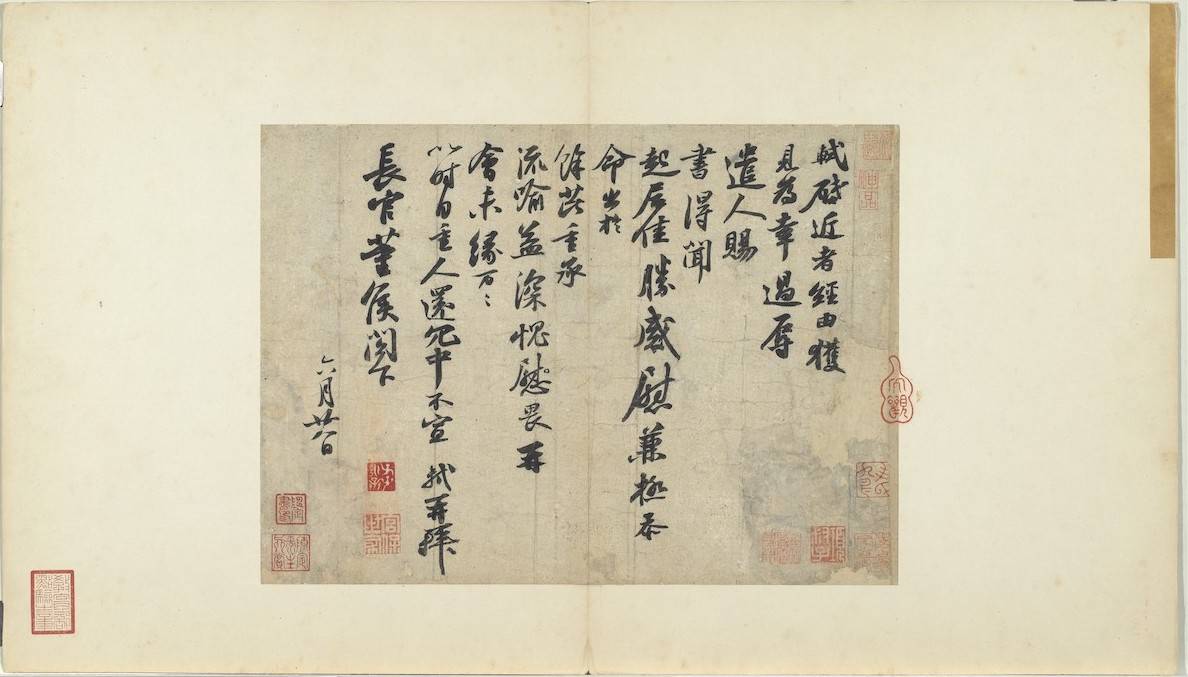 軾啟近者經由獲
見為幸過辱
遣人賜
書得聞
起居佳勝感慰兼極忝
命出於
餘芘重承
流喻益深愧慰畏再
會未緣万〻
以時自重人還冗中不宣 軾再拜
長官董侯閣下
六月廿八日